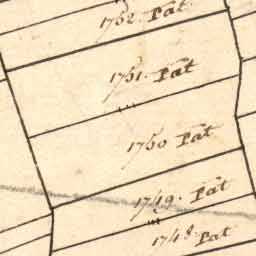 1752. Pat
1751. Pat
1750 Pat
1749. Pat
1748 Pat